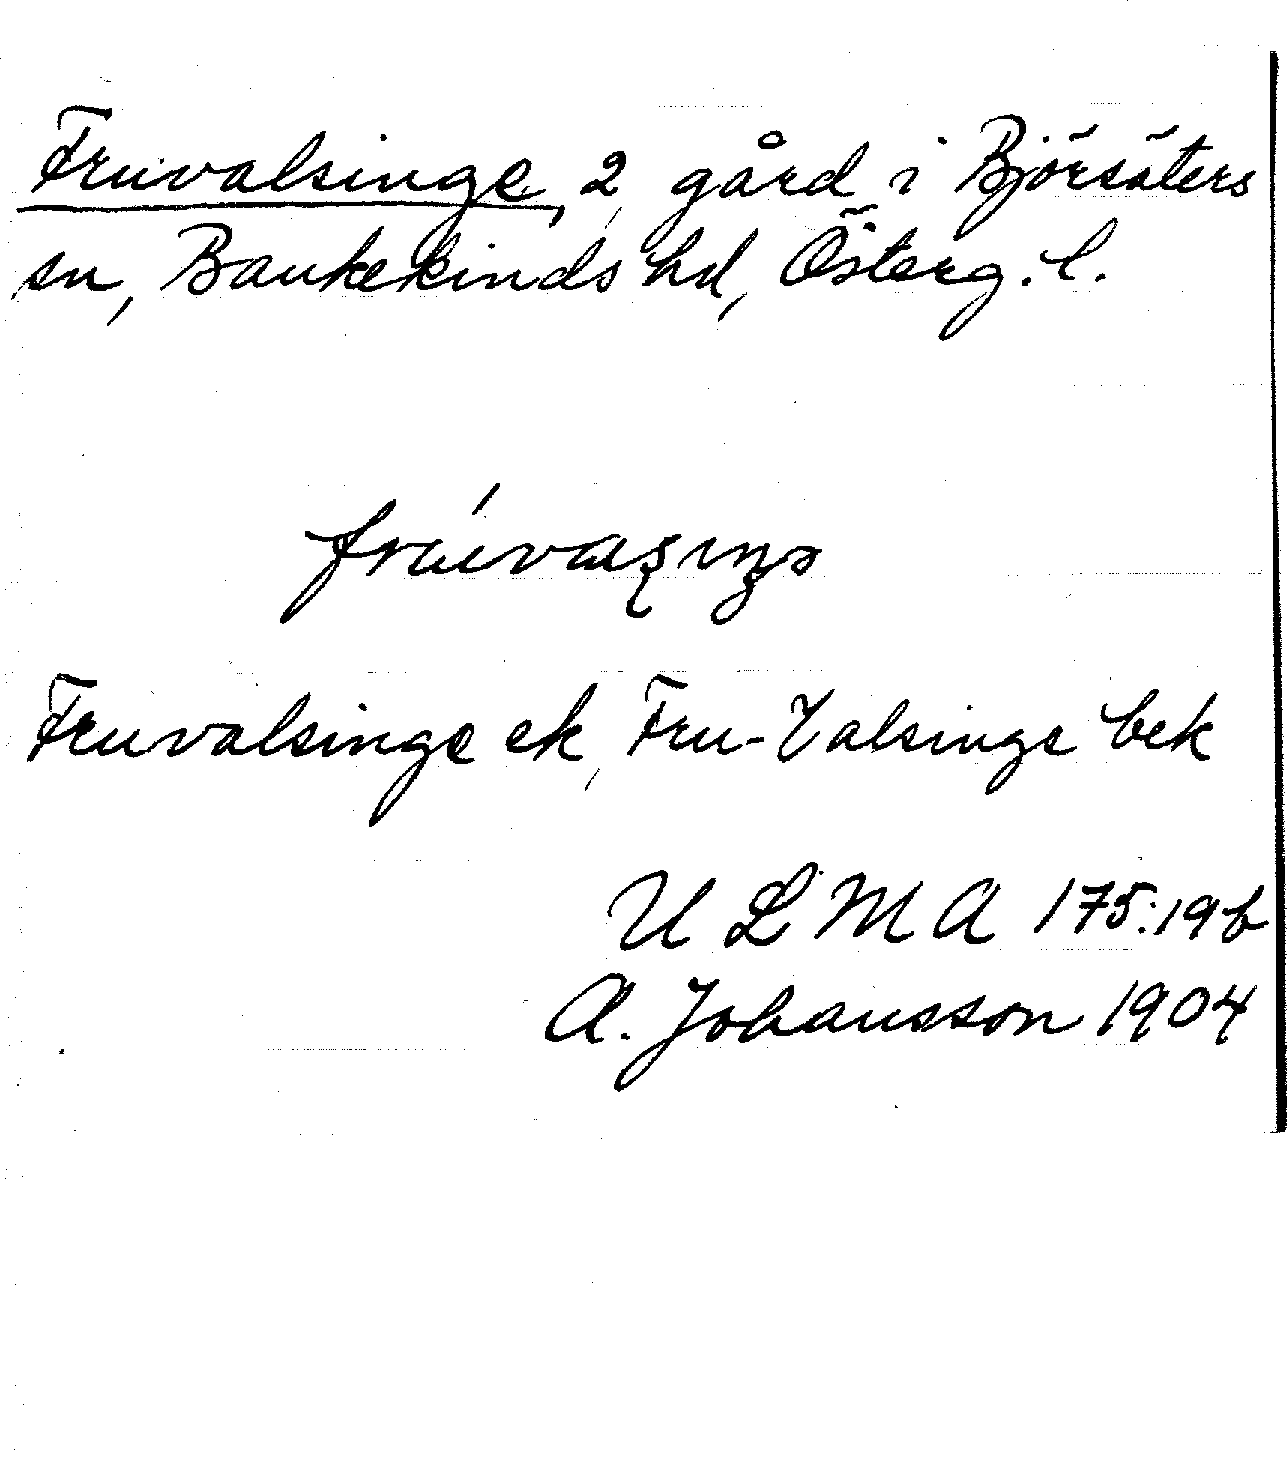 Fruvalsinge, 2, gård i Björsäters
sn, Bankekinds hd, Österg. l.
Fruvalsinge ek, Fru-Valsinge bek
ULMA 175:19b
A. Johansson 1904